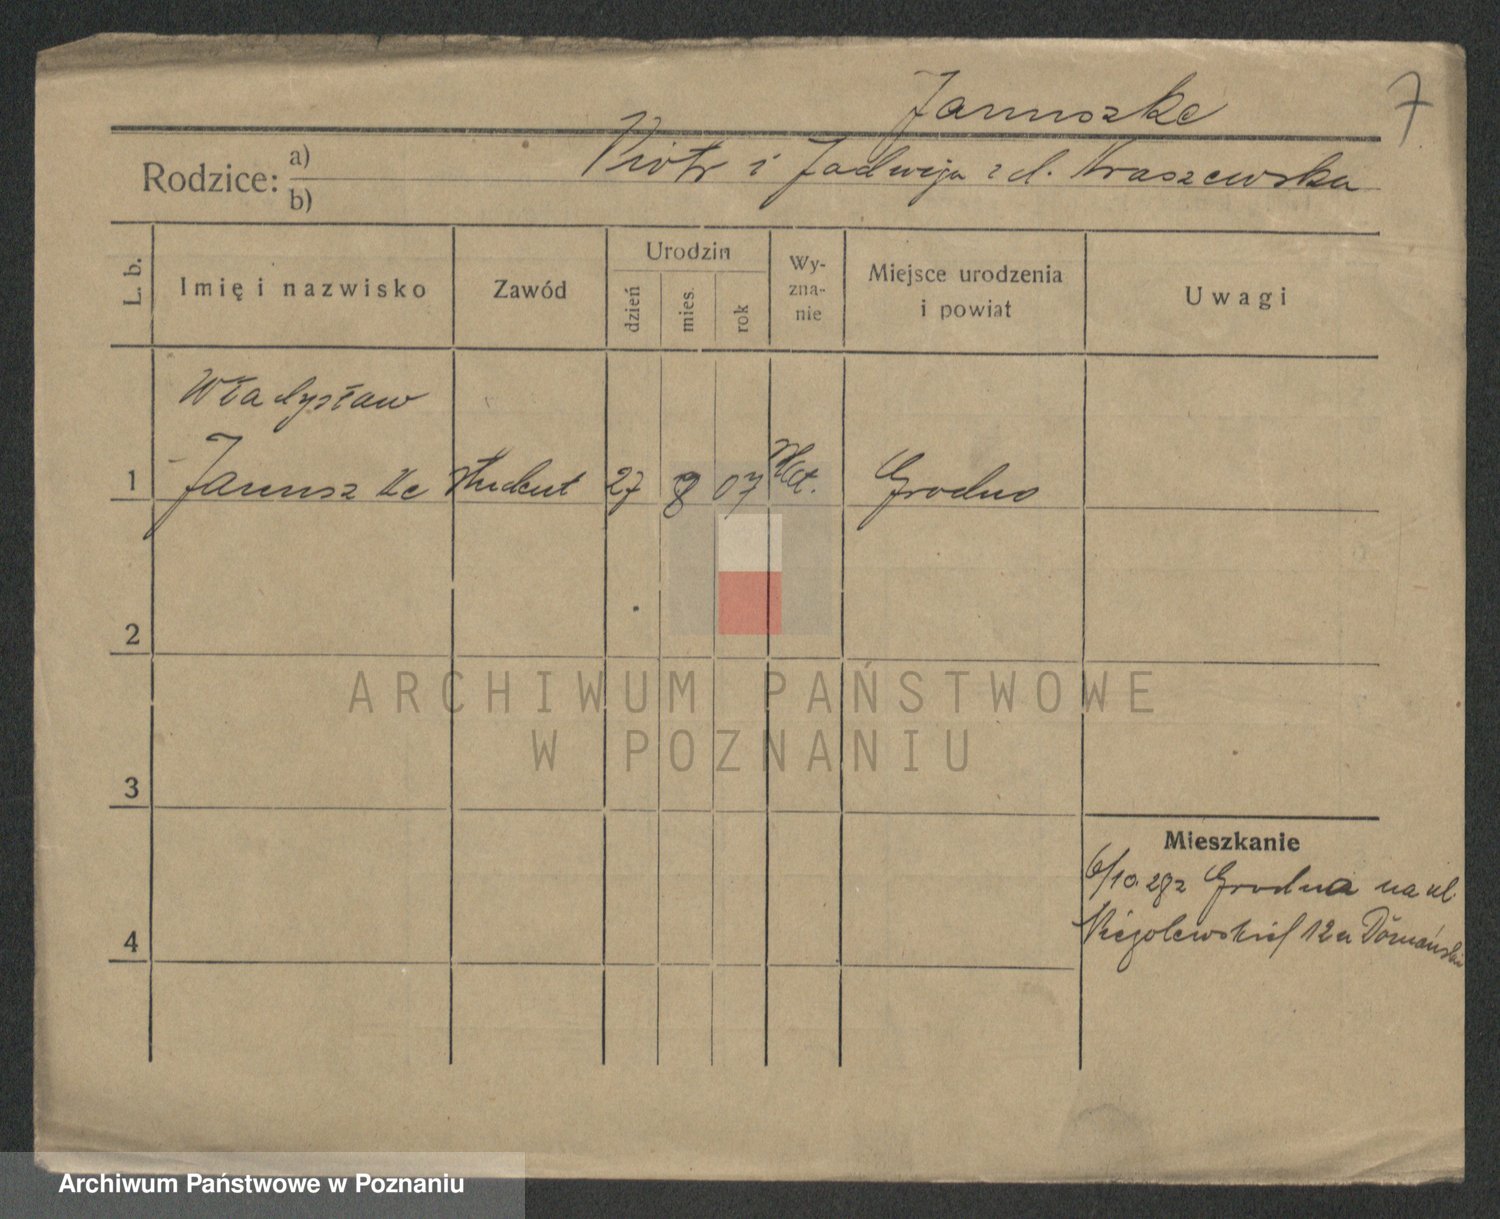 Januszke
7
Rodzice: a)
b)
Piotr i Jadwiga z d. Kraszewska
L. b.
Imię i nazwisko
Zawód
Urodzin
dzień
mies.
rok
Wy-
zna-
nie
Miejsce urodzenia
i powiat
Uwagi
Władysław
1 Januszke student 27 8 07 Grodno
2
ARCHIWUM PAŃSTWOWE
W POZNANIU
3
Mieszkanie
6/10.28 z Grodna na ul.
4
Niegolewskich 12 u
Archiwum Państwowe w Poznaniu